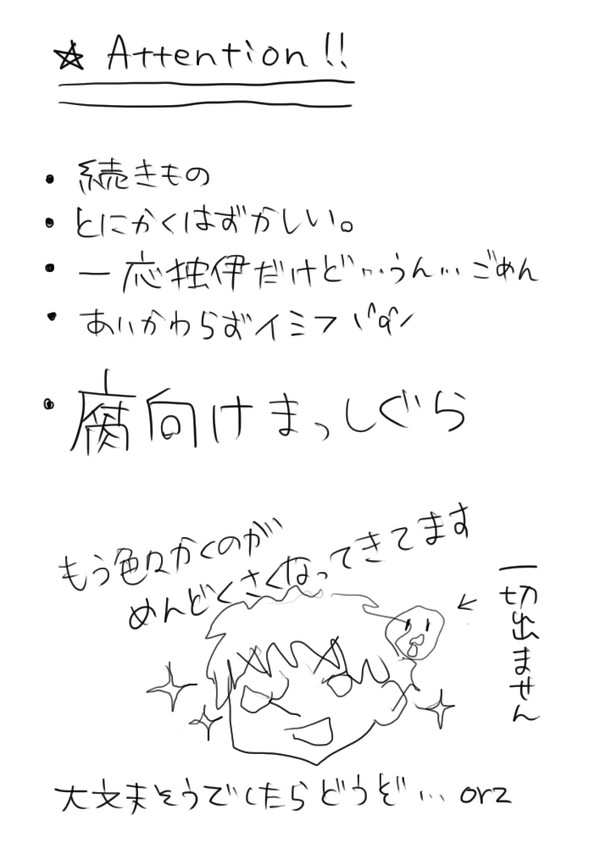 ☆ Attention!!
・続きもの
・とにかくはずかしい。
・一応独伊だけど…うん…ごめん
・あいかわらずイミフ
・腐向けまっしぐら
もう色々かくのが
めんどくさくなってきてます
←一切出ません
大丈夫そうでしたらどうぞ… orz